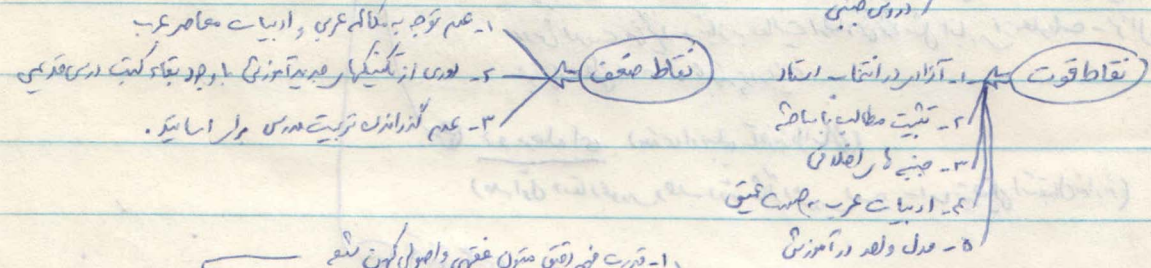 دروس جنبی
نقاط قوت
۱- آزادی در انتخاب استاد
۲- تثبیت مطالب با مباحثه
۳- جنبه های اخلاقی
۴- ادبیات عرب به صورت عمیق
۵- مدل واحد در آموزش
نقاط ضعف
۱- عدم توجه به مکالمه عربی و ادبیات معاصر عرب
۲- دوری از تکنیکهای جدید آموزشی با وجود بقاء کتب درسی قدیمی
۳- عدم گذراندن تربیت مدرس برای اساتید.
۱- قدرت فهم دقیق متون فقهی و اصولی کهن شیعه